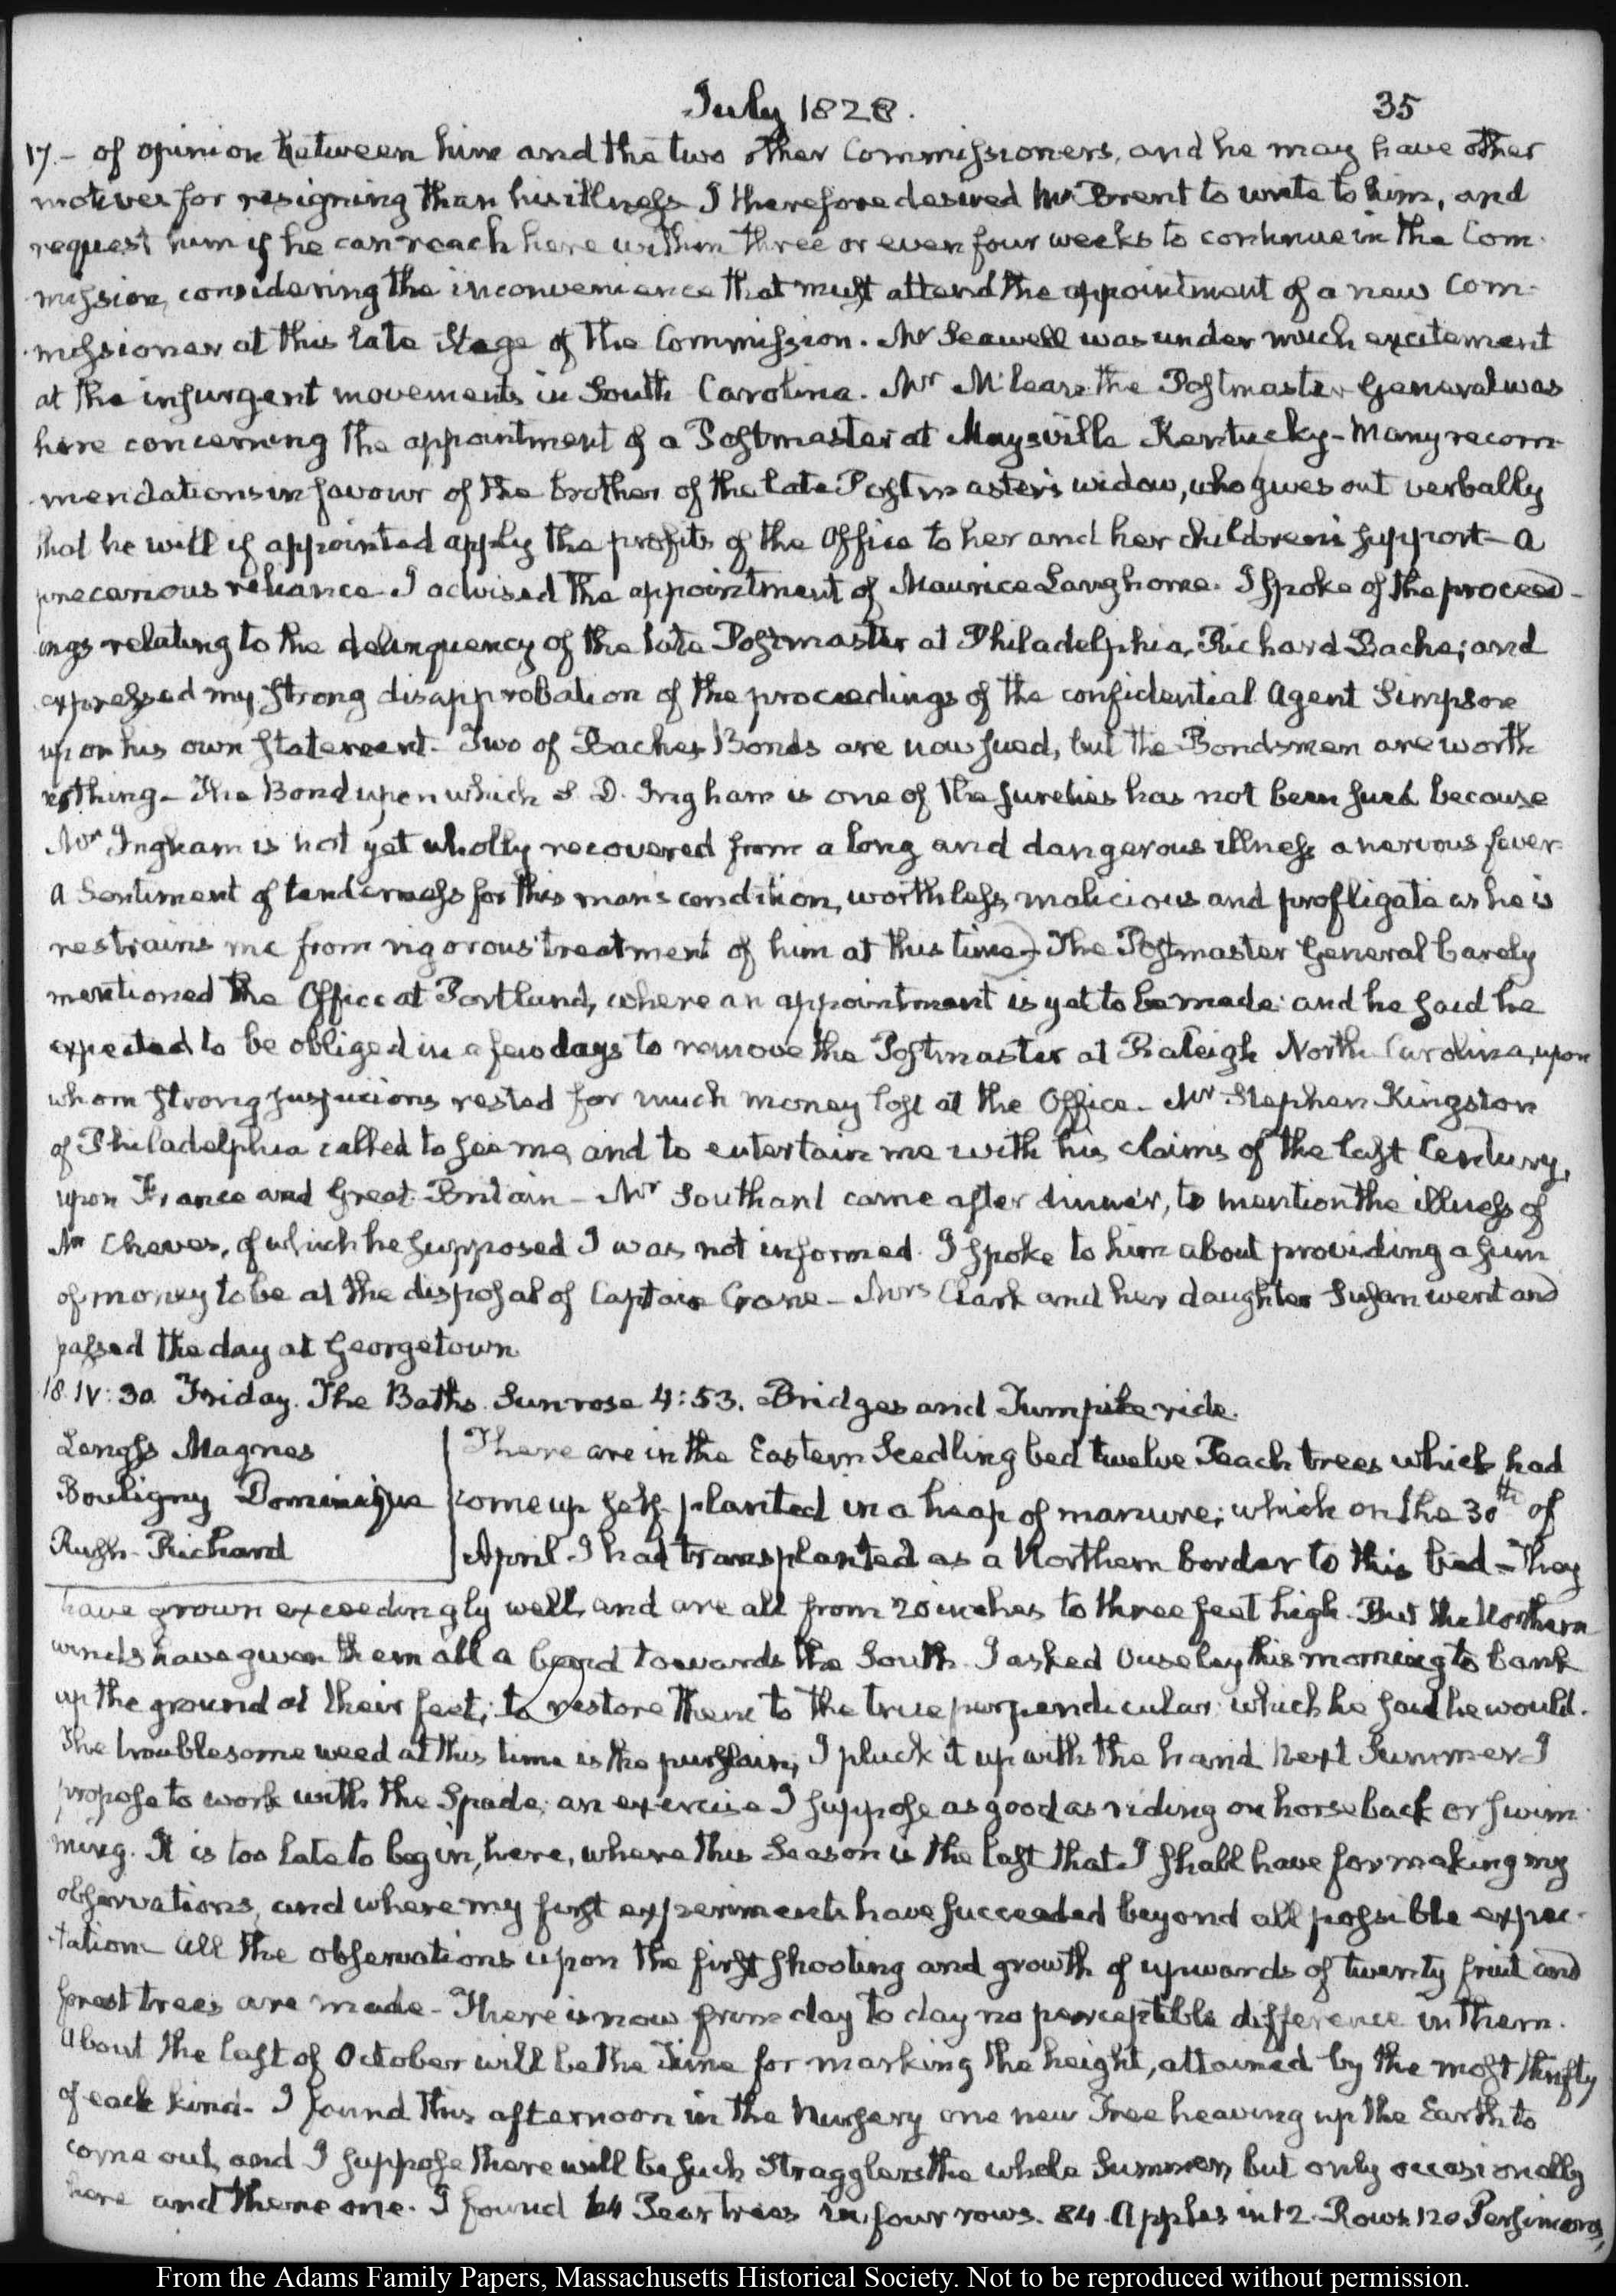 July 1828.
35
17.- of opinion between him and the two other Commissioners, and he may have other
motives for resigning than his illness I therefore desired Mr Brent to write to him, and
request him if he can reach here within three or even four weeks to continue in the Com-
mission, considering the inconvenience that must attend the appointment of a new Com-
missioner at this late Stage of the Commission. Mr Seawell was under much excitement
at the insurgent movements in South Carolina. Mr McLean the Postmaster General was
here concerning the appointment of a Postmaster at Maysville Kentucky- Many recom-
mendations in favour of the brother of the late Postmaster's widow, who gives out verbally
that he will if appointed apply the profits of the Office to her and her children's support- a
precarious reliance. I advised the appointment of Maurice Langhorne. I spoke of the proceed-
ings relating to the delinquency of the late Postmaster at Philadelphia, Richard Bache; and
expressed my strong disapprobation of the proceedings of the confidential Agent Simpson
upon his own statement- Two of Baches Bonds are now sued, but the Bondsmen are worth
nothing- The Bond upon which S. D. Ingham is one of the sureties has not been sued because
Mr Ingham is not yet wholly recovered from a long and dangerous illness a nervous fever-
A Sentiment of tenderness for this man's condition, worthless, malicious and profligate as he is
restrains me from rigorous treatment of him at this time- The Postmaster General barely
mentioned the Office at Portland, where an appointment is yet to be made: and he said he
expected to be obliged in a few days to remove the Postmaster at Raleigh North Carolina, upon
whom strong suspicions rested for much money lost at the Office- Mr Stephen Kingston
of Philadelphia called to see me, and to entertain me with his claims of the last Century,
upon France and Great Britain- Mr Southard came after dinner, to mention the illness of
Mr Cheves, of which he supposed I was not informed. I spoke to him about providing a sum
of money to be at the disposal of Captain Crane- Mrs Clark and her daughter Susan went and
passed the day at Georgetown
18. IV:30. Friday. The Baths. Sun rose 4:53. Bridges and Turnpike ride.
Magnes
Bouligny Dominique
Rush- Richard
There are in the Eastern Seedling bed twelve Peach trees which had
come up self planted in a heap of manure; which on the 30th of
April I had transplanted as a Northern border to this bed- They
have grown exceedingly well, and are all from 20 inches to three feet high. But the Northern
winds have given them all a bend towards the South. I asked Ouseley this morning to bank
up the ground at their feet; to restore them to the true perpendicular: which he said he would.
The troublesome weed at this time is the purslain; I pluck it up with the hand. Next Summer I
propose to work with the Spade; an exercise I suppose as good as riding on horseback or swim-
ming. It is too late to begin, here, where this Season is the last that I shall have for making my
observations, and where my first experiments have succeeded beyond all possible expec-
tation- All the observations upon the first shooting and growth of upwards of twenty fruit and
forest trees are made- There is now from day to day no perceptible difference in them.
About the last of October will be the Time for marking the height, attained by the most thrifty
of each kind- I found this afternoon in the Nursery one new Tree heaving up the Earth to
come out, and I suppose there will be such stragglers the whole Summer, but only occasionally
here and there one. I found 64 Pear trees in four rows. 84 Apples in 12 Rows 120 Persimons,
From the Adams Family Papers, Massachusetts Historical Society. Not to be reproduced without permission.